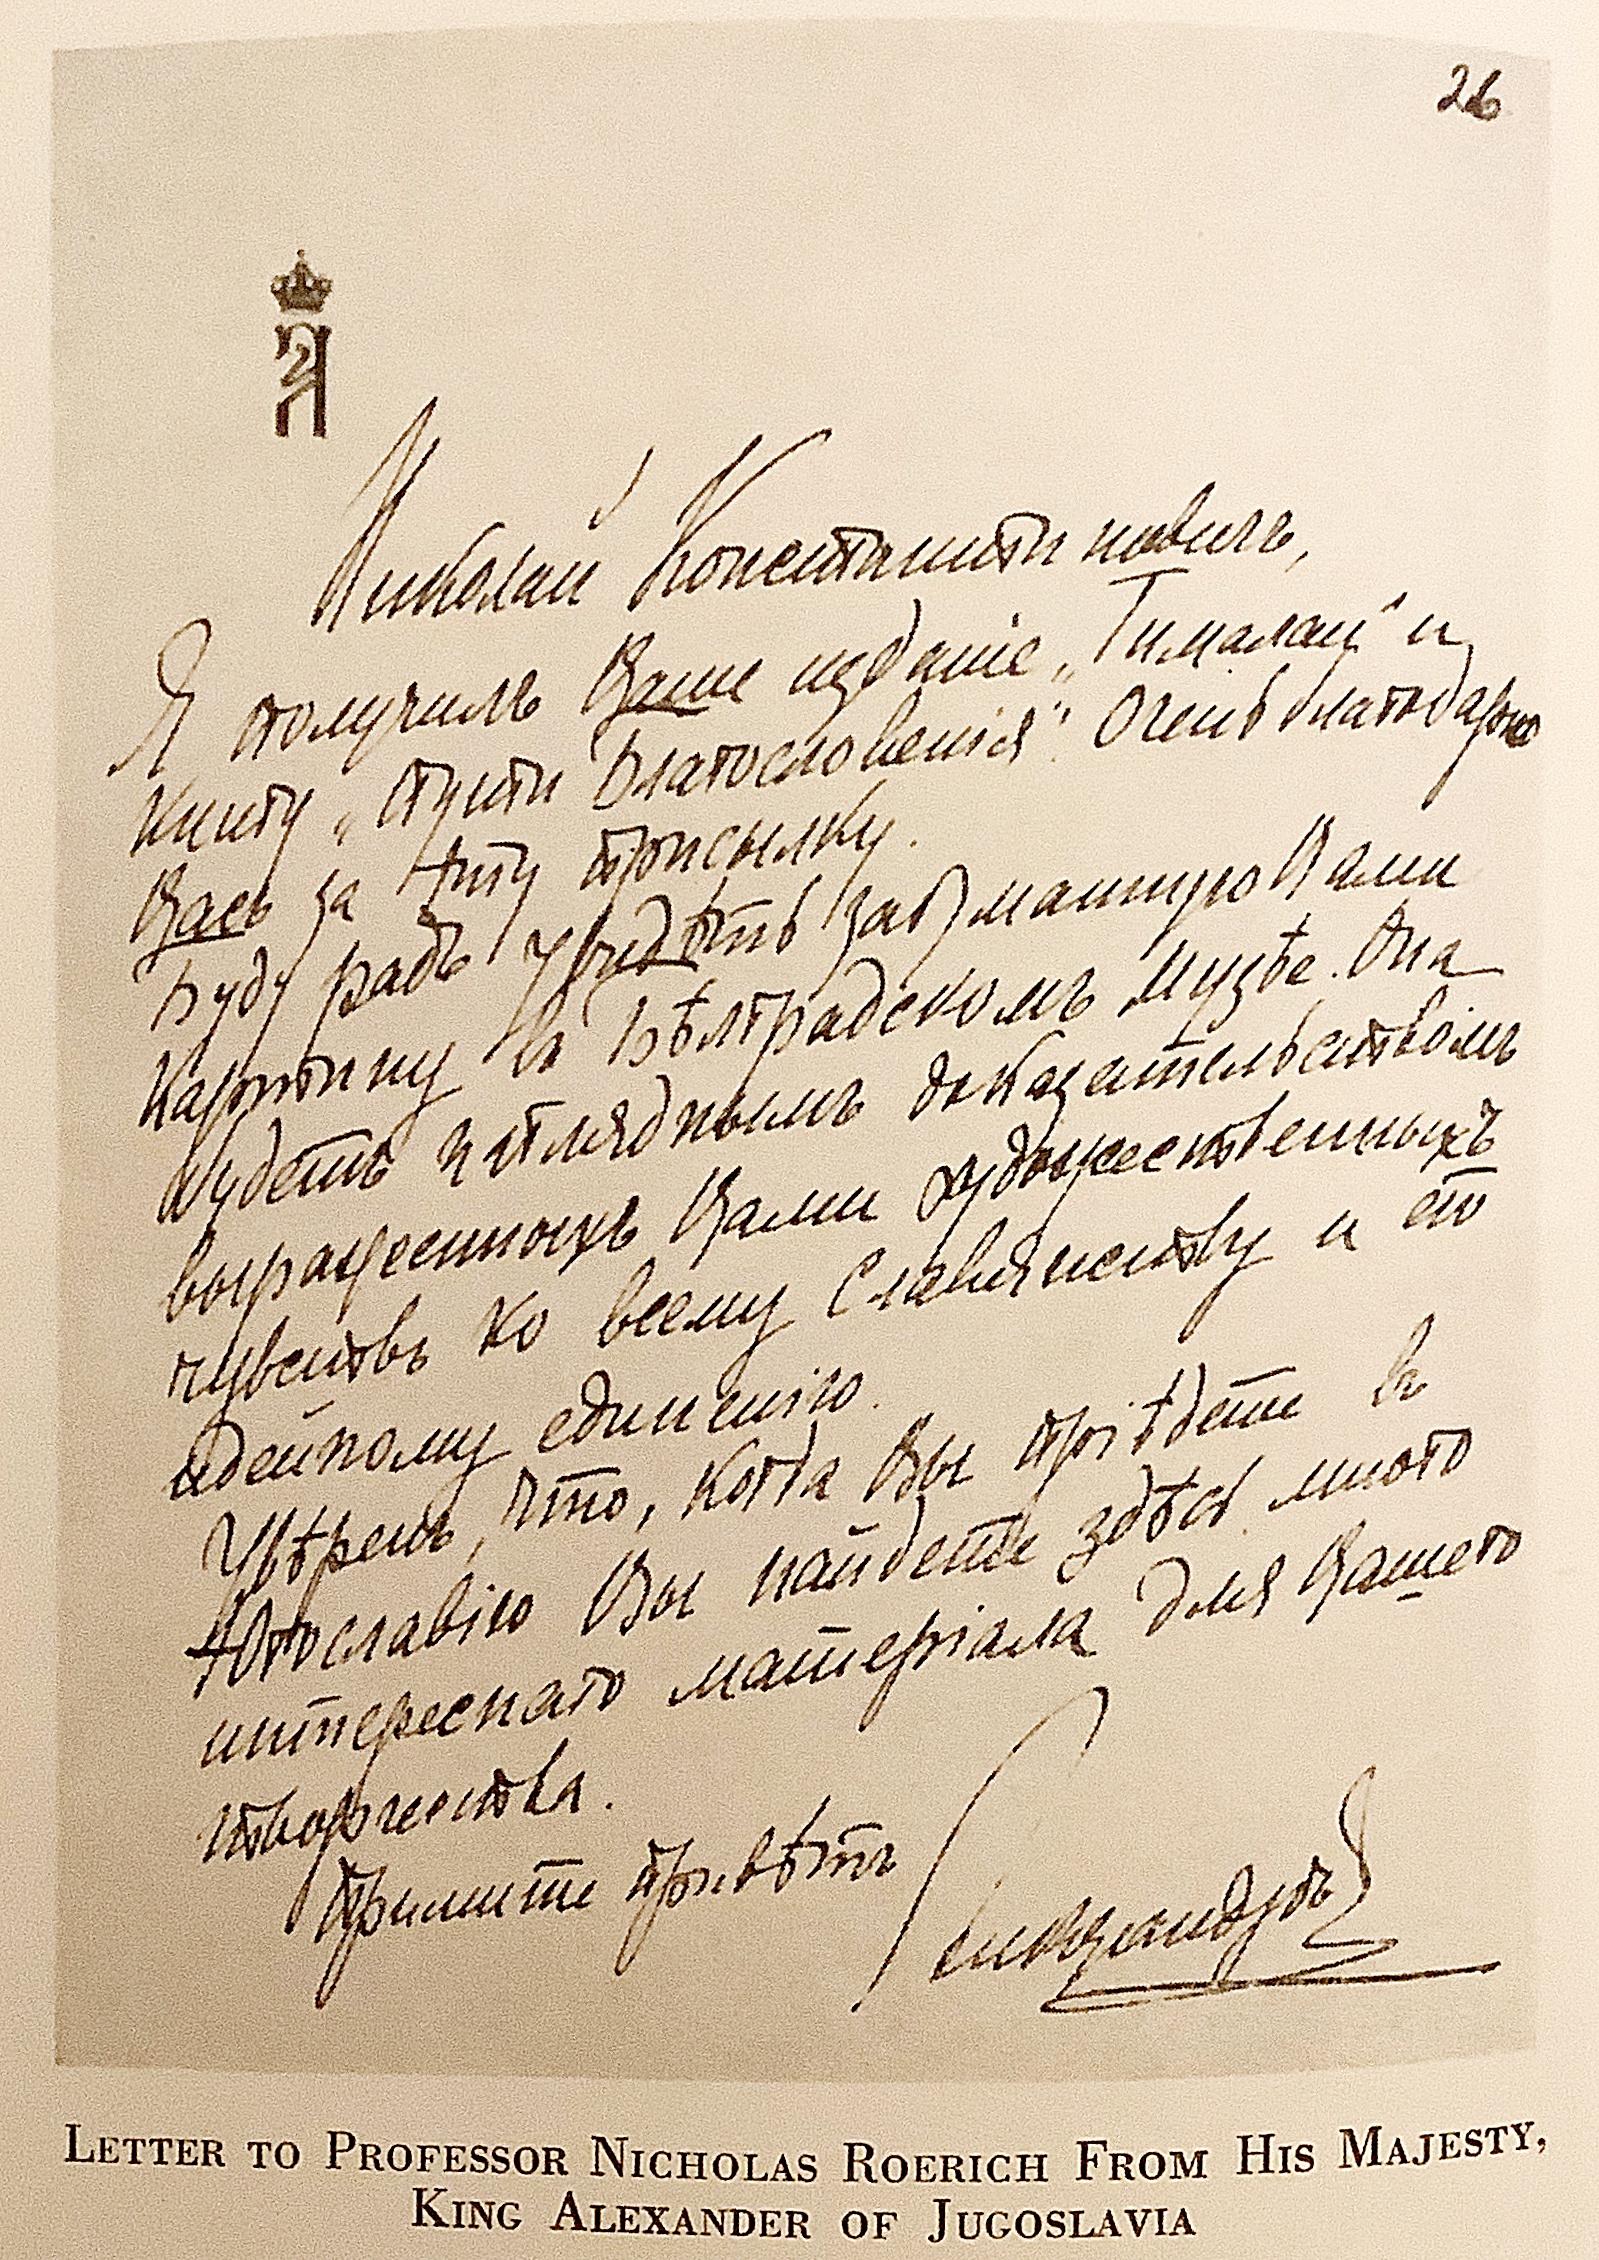 26
Николай Константиновичъ,
Я получилъ Ваше изданіе „Гималаи“ и
книгу „Пути Благословенія“. Очень благодарю
Васъ за эту присылку.
Буду радъ увидѣть задуманную Вами
картину въ Бѣлградскомъ Музѣе. Она
будетъ нагляднымъ доказательствомъ
выраженныхъ Вами художественныхъ
чувствъ ко всему Славянству и его
идейному единенію.
Увѣренъ, что, когда Вы пріѣдете въ
Югославію Вы найдете здѣсь много
интереснаго матеріала для Вашего
творчества.
Примите привѣтъ
Александръ
Letter to Professor Nicholas Roerich From His Majesty,
King Alexander of Jugoslavia